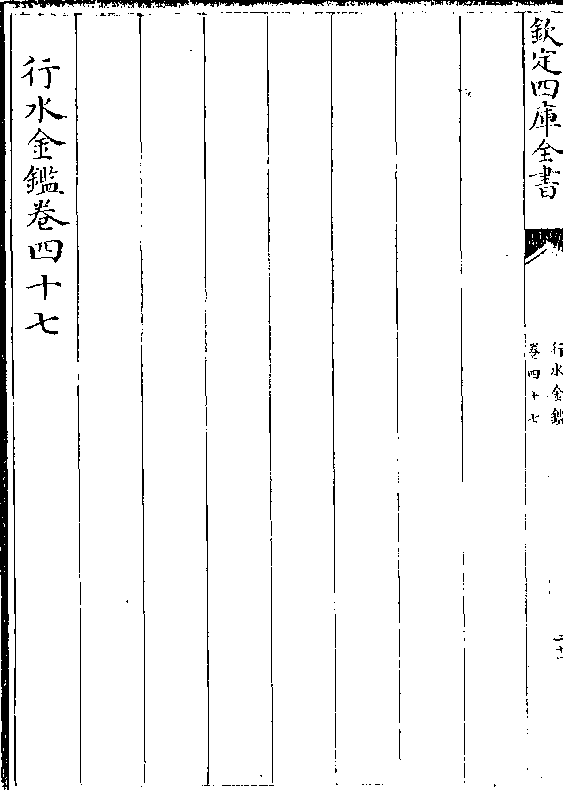 欽定四庫全書
行水金鑑
卷四十七
行水金鑑卷四十七